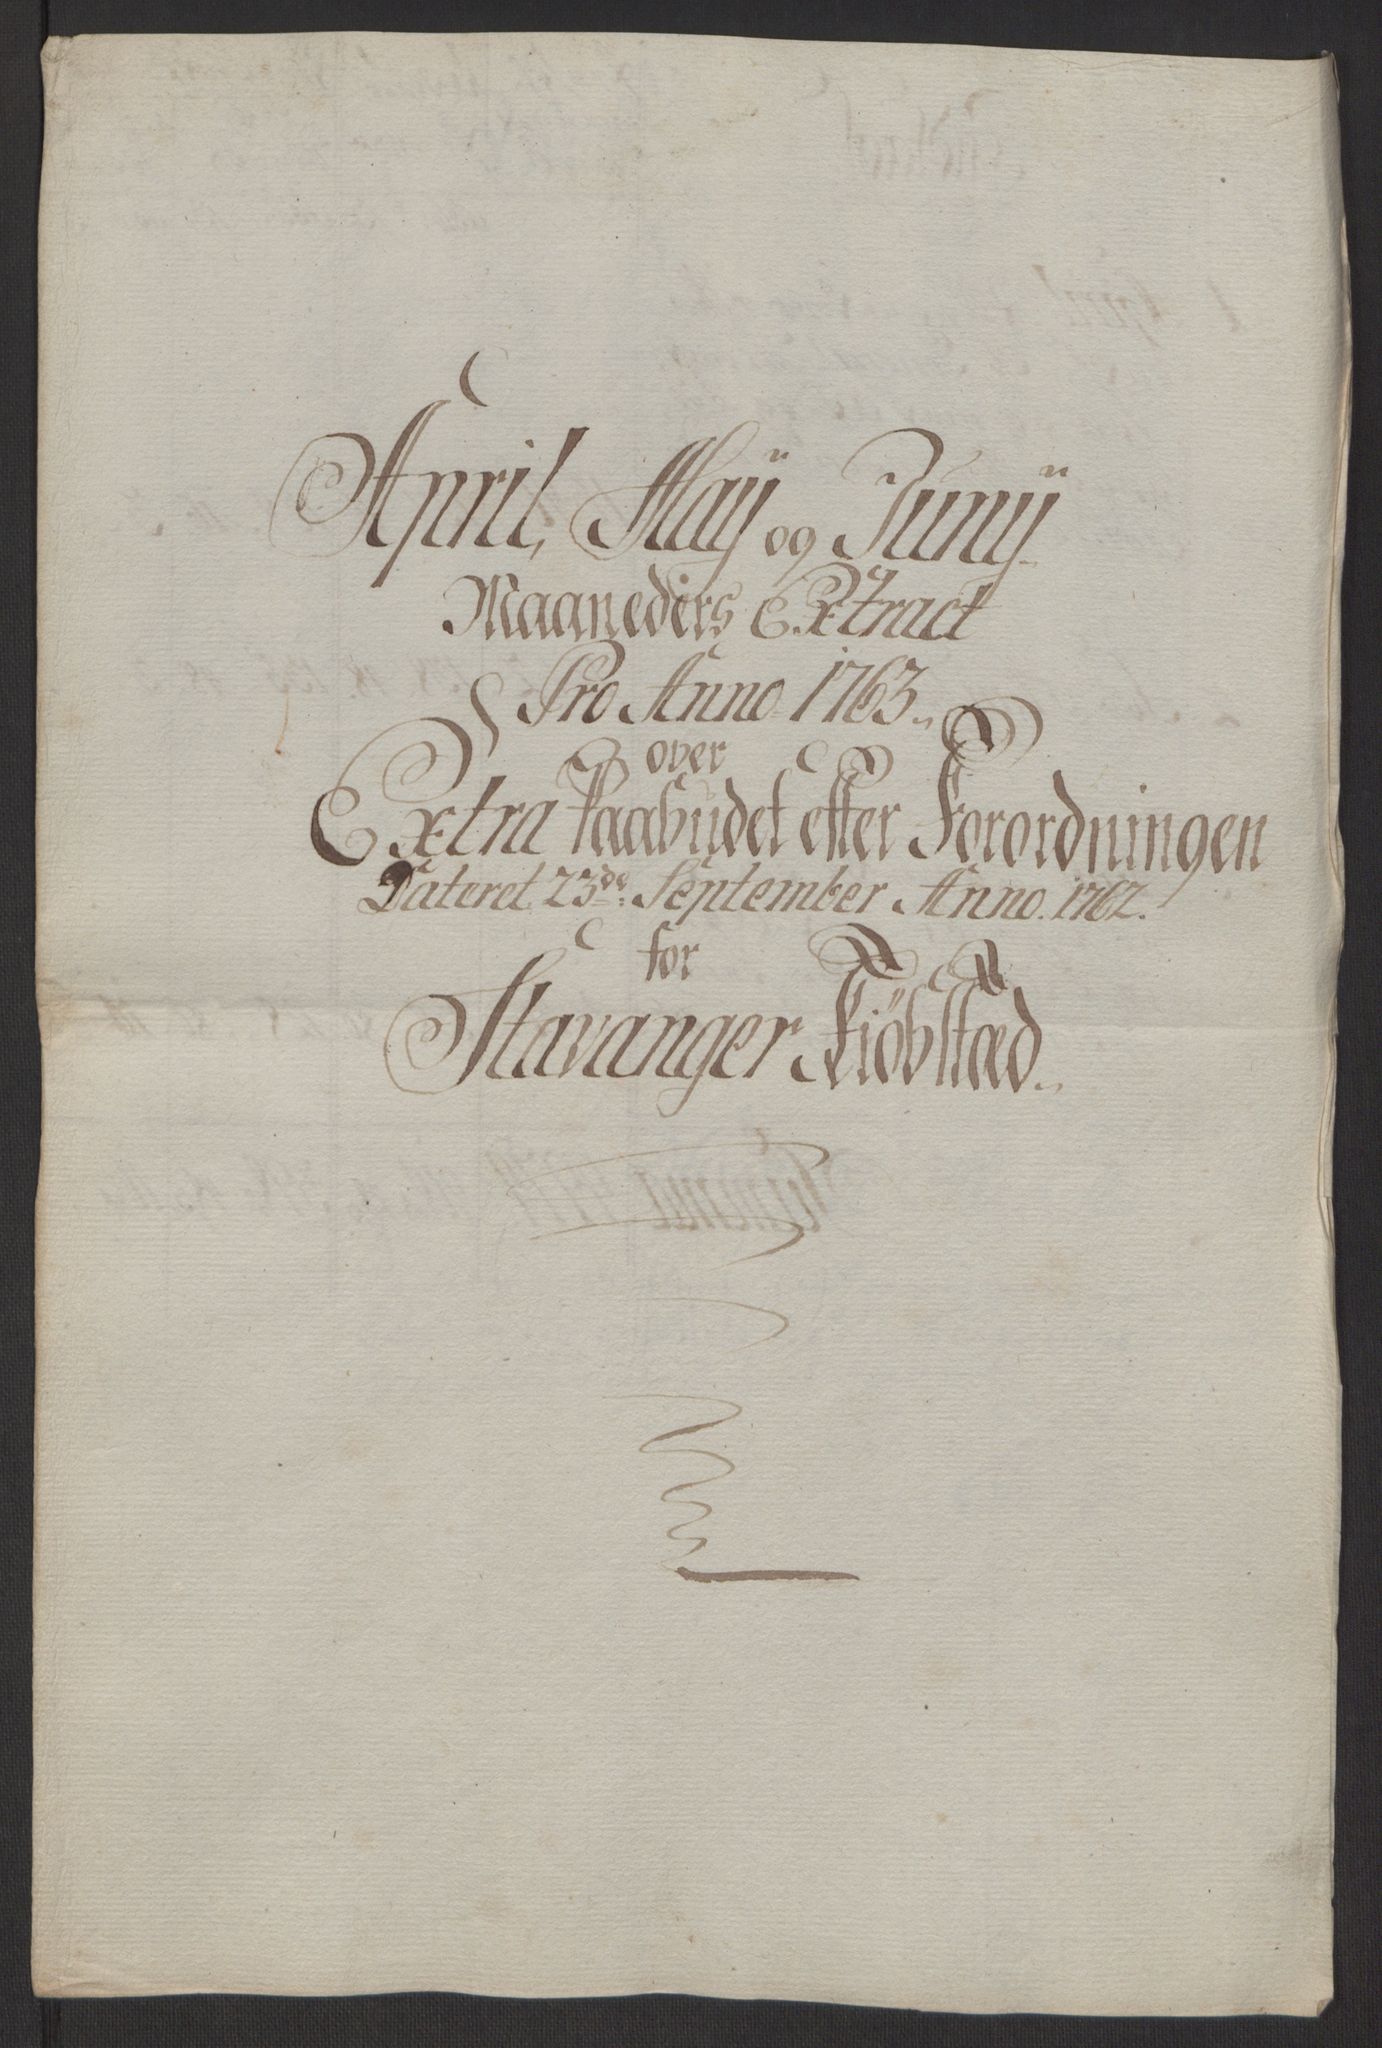 April, Maÿ og Junÿ
Maaneders Extract
Pro Anno 1763.
over
Extra Paabudet efter Forordningen
Dateret 23de September Anno 1762.
for
Stavanger Kiöbstæd.